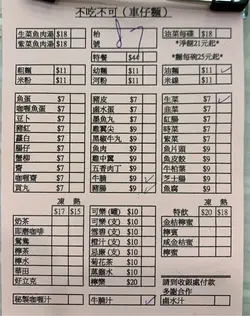 不吃不可(車仔麵)
生菜魚肉湯 $18 枱 油菜每碟 $18
紫菜魚肉湯 $18 號 *淨餸21元起*
特餐 $44 *麵每碗25元起*
粗麵 $11 幼麵 $11 油麵 $11
米粉 $11 河粉 $11 米線 $11
魚蛋 $7 豬皮 $7 生菜 $7
咖喱魚蛋 $7 鹵水蛋 $7 韭菜 $7
豆卜 $7 墨魚丸 $7 紅腸 $7
豬紅 $7 雞翼尖 $9 時菜 $7
蘿白 $7 黑椒牛丸 $9 紫菜 $7
腸仔 $7 魚肉 $9 魚片頭 $9
蟹柳 $7 雞中翼 $9 魚皮餃 $9
齋 $7 五香肉丁 $9 牛柏葉 $9
咖喱齋 $7 牛腩 $9 芝士腸 $9
貢丸 $7 豬腸 $9 魚腐 $9
凍 熱 凍 熱
$17 $15 可樂(罐) $10 特飲 $20 $18
奶茶 可樂(支) $9 金桔檸蜜
即磨咖啡 雪碧(支) $9 檸賓
鴛鴦 橙汁(支) $9 咸金桔蜜
檸茶 忌廉(支) $9 檸蜜
檸水 菊花茶 $10
華田 蒸餾水 $10 請到收銀處付款
好立克 檸樂 $20 多謝合作
秘製咖喱汁 牛腩汁 鹵水汁